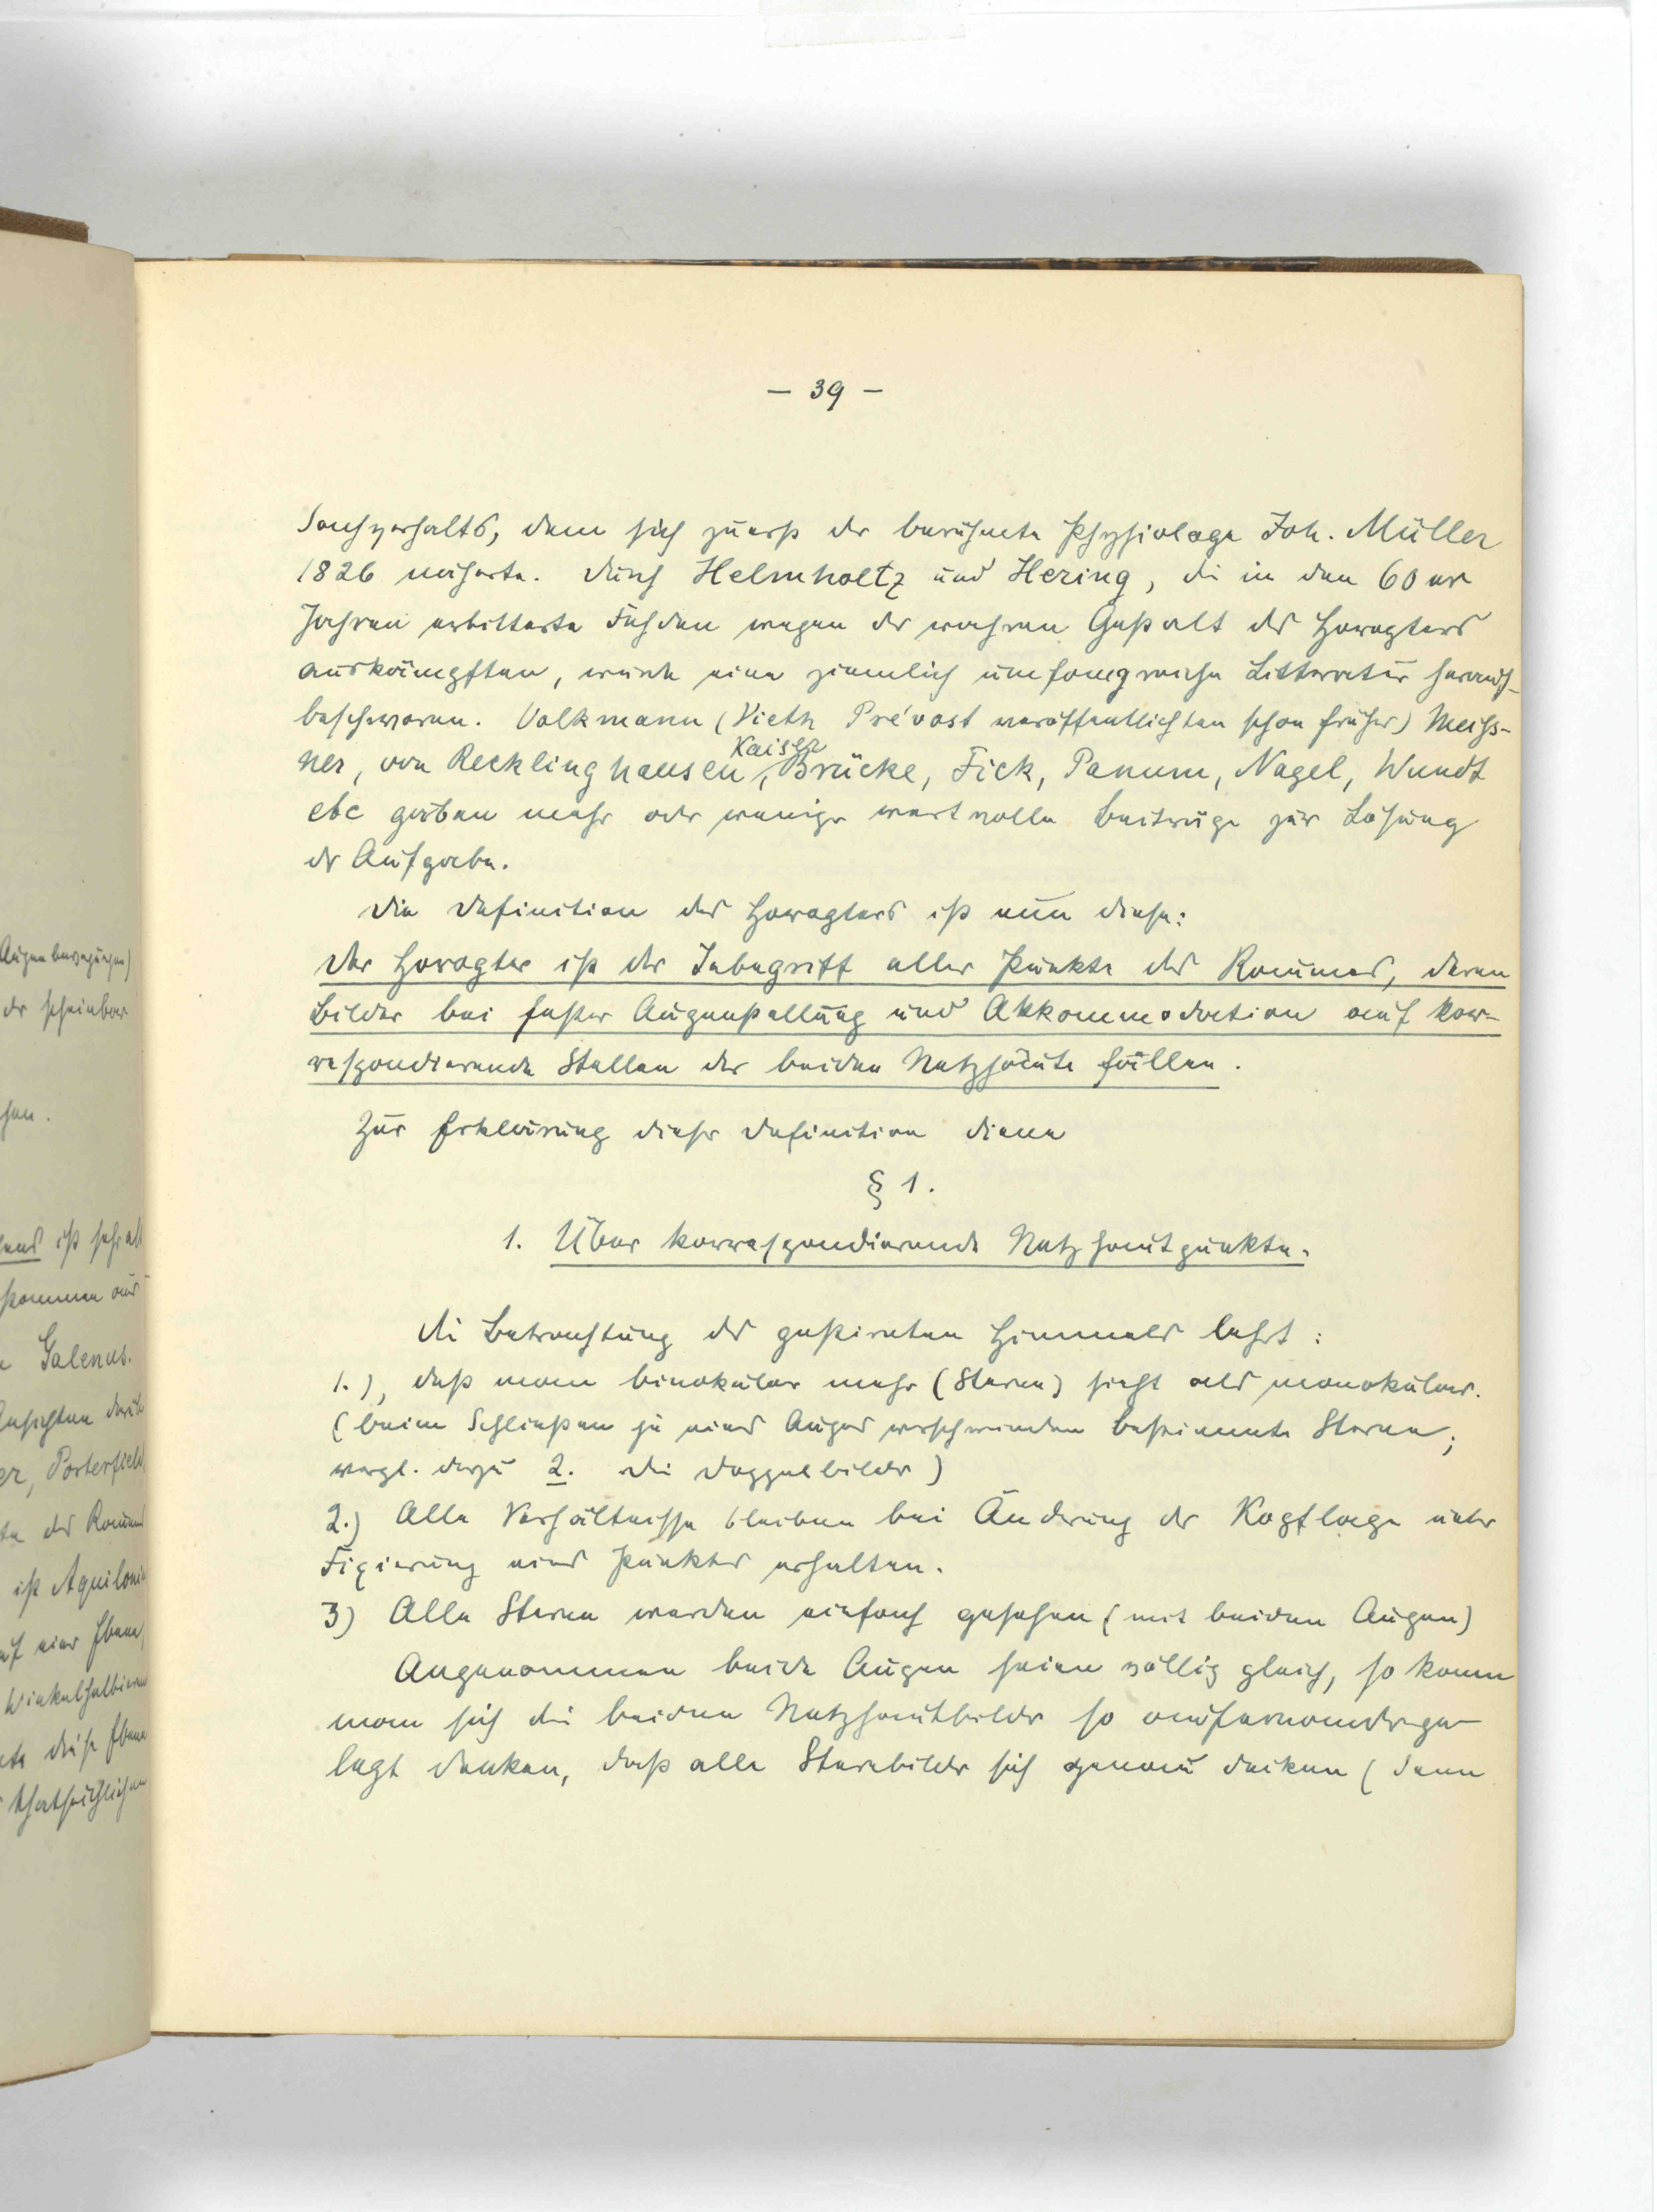 Augenbewegungen)
der scheinbar
hen.
ist sehr alt
stammen aus
Galenus.
Ansichten darüb
er, Porterfield
te des Raumes
ist Aquiloni
auf einer Ebene,
Winkelhalbieren
diese Ebene
thatsächlichen
– 39 –
Sachverhalts, dem sich zuerst der berühmte Physiologe Joh. Müller
1826 näherte. Durch Helmholtz und Hering, die in den 60er
Jahren erbitterte Fehden wegen der wahren Gestalt des Horopters
auskämpften, wurde eine ziemlich umfangreiche Litteratur herauf-
beschworen. Volkmann (Vieth Prévost veröffentlichten schon früher) Meiss-
ner, von Recklinghausen, Kaiser Brücke, Fick, Panum, Nagel, Wundt
etc gaben mehr oder weniger wertvolle Beiträge zur Lösung
der Aufgabe.
Die Definition des Horopters ist nun diese:
Der Horopter ist der Inbegriff aller Punkte des Raumes, deren
Bilder bei fester Augenstellung und Akkommodation auf kor-
respondierende Stellen der beiden Netzhäute fallen.
Zur Erklärung dieser Definition diene
§ 1.
1. Über korrespondierende Netzhautpunkte.
Die Betrachtung des gestirnten Himmels lehrt:
1.), daß man binokular mehr (Sterne) sieht als monokular.
(beim Schließen je eines Auges verschwinden bestimmte Sterne;
vergl. dazu 2. Die Doppelbilder)
2.) Alle Verhältnisse bleiben bei Änderung der Kopflage unter
Fixierung eines Punktes erhalten.
3) Alle Sterne werden einfach gesehen (mit beiden Augen)
Angenommen beide Augen seien völlig gleich, so kann
man sich die beiden Netzhautbilder so aufeinanderge-
legt denken, daß alle Sternbilder sich genau decken (denn